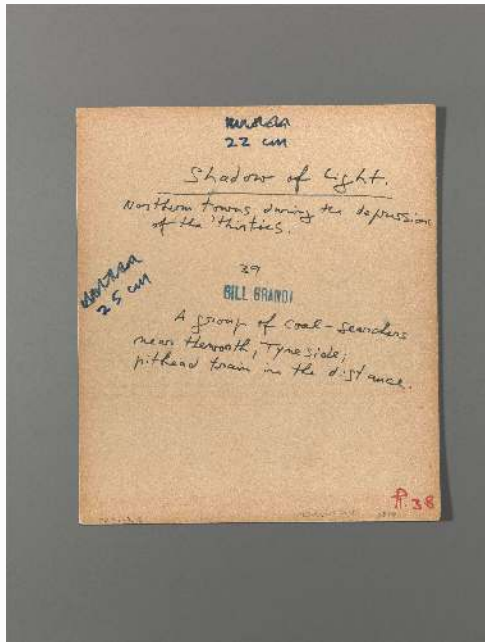 22 cm
Shadow of Light.
Northern towns during the depression
of the 'thirties.
39
25 cm
BILL BRANDT
A group of coal-searchers
near Heworth, Tyneside;
pithead train in the distance.
38